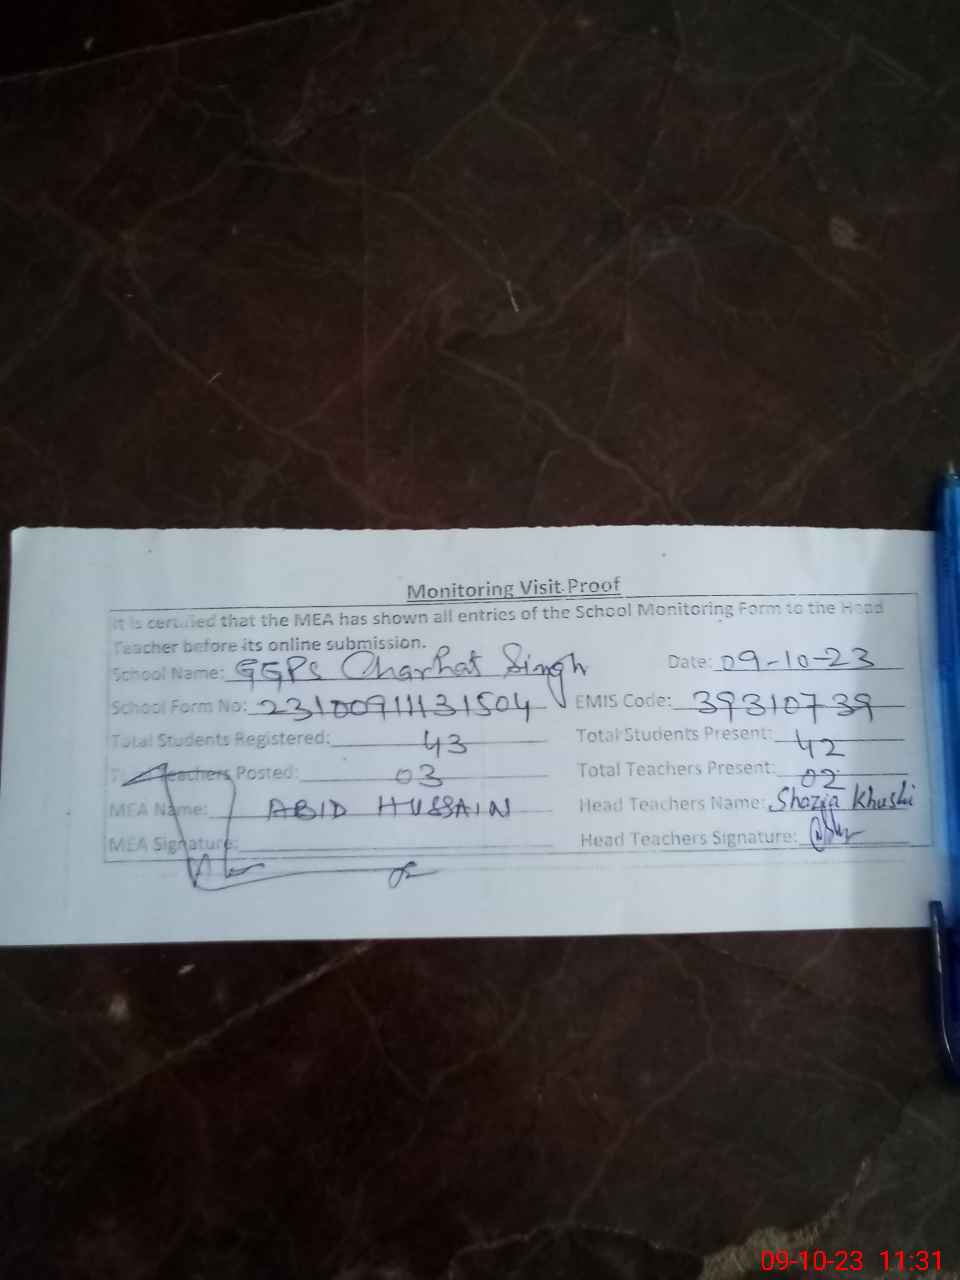 Monitoring Visit Proof
It is certified that the MEA has shown all entries of the School Monitoring Form to the Head
Teacher before its online submission.
School Name: GGPS Charhat Singh Date: 09-10-23
School Form No: 23100911131504 EMIS Code: 39310739
Total Students Registered: 43 Total Students Present: 42
Teachers Posted: 03 Total Teachers Present: 02
MEA Name: ABID HUSSAIN Head Teachers Name: Shazia Khushi
MEA Signature: Head Teachers Signature:
09-10-23 11:31